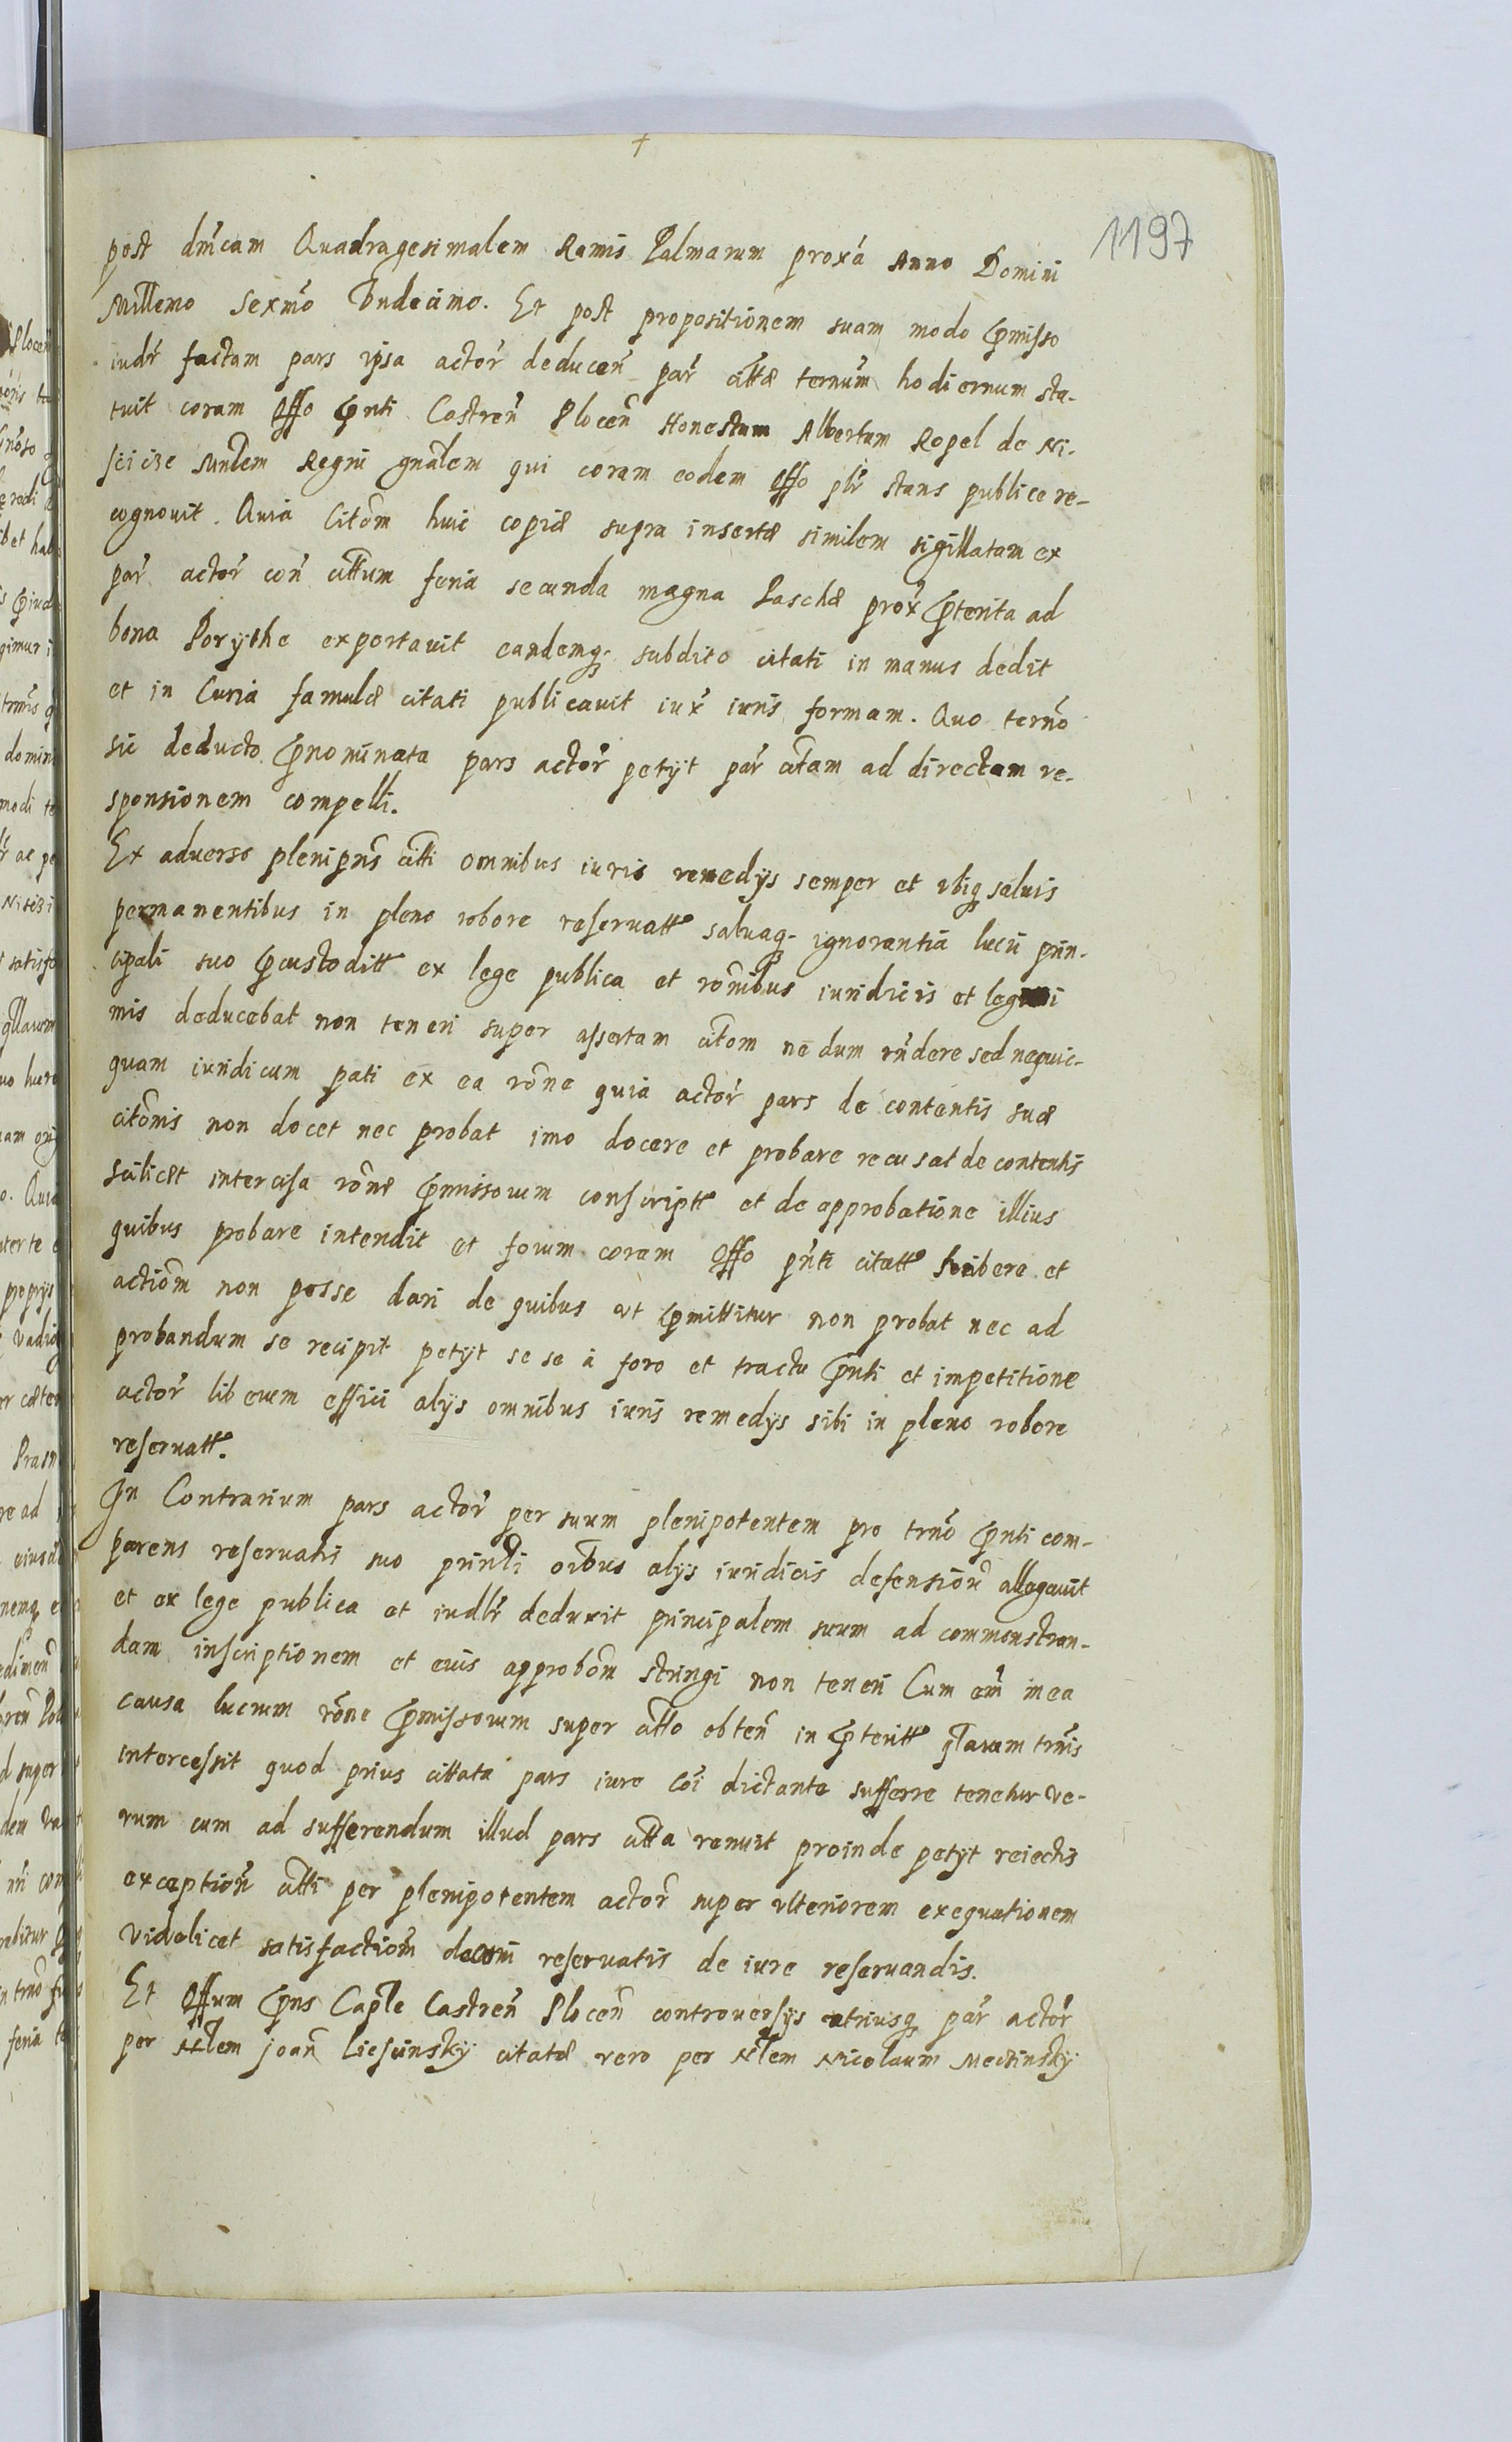 +
1197
post dnicam Quadragesimalem Ramis Palmarum proxa Anno Domini
Millemo Sexmo Undecimo. Et post propositionem suam modo pmisso
iudr factam pars ipsa actor deducen par cittae ternum hodiernum sta-
tuit coram Offo pnti Castren Plocen Honestum Albertum Ropel de Ni-
scicze Juntem Regni gnalem qui coram eodem Offo plr stans publice re-
cognovit. Quia Citom huic copiae supra insertae similem sigillatam ex
par actor con cittum feria secunda magna Paschae prox pterita ad
bona Porythe exportavit eandemq. subdito citati in manus dedit
et in Curia famulae citati publicavit iux iuris formam. Quo terno
sic deducto pnominata pars actor petyt par citam ad directam re-
sponsionem compelli.
Ex adverso plenipns citti omnibus iuris remedys semper et ubiq salvis
permanentibus in pleno robore reservatt salvaq. ignorantia lucri prin-
cipali suo pcustoditt ex lege publica et ronibus iuridicis et legitti
mis deducebat non teneri super assertam citom ne dum rndere sed nequic-
quam iuridicum pati ex ea rone quia actor pars de contentis suae
citonis non docet nec probat imo docere et probare recusat de contentis
scilicet intercisa rone pmissorum conscriptt et de approbatione illius
quibus probare intendit et forum coram Offo pnti citatt scribere et
actiom non posse dari de quibus ut pmittitur non probat nec ad
probandum se recipit petyt se se a foro et tractu pnti et impetitione
actor liberum effici alys omnibus iuris remedys sibi in pleno robore
reservatt.
In Contrarium pars actor per suum plenipotentem pro trno pnti com-
parens reservatis suo prinli oibus alys iuridicis defension allegavit
et ex lege publica et iudlr deduxit principalem suum ad commonstran-
dam inscriptionem et eius approbom stringi non teneri Cum em in ea
causa lucrum rone pmissorum super citto obten in pteritt qlarum trnis
intercessit quod prius cittata pars iure coi dictante sufferre tenetur ve-
rum cum ad sufferendum illud pars citta renuit proinde petyt reiectis
exception citti per plenipotentem actor super ulteriorem exequationem
videlicet satisfactiom decerni reservatis de iure reservandis.
Et Offum pns Caple Castren Plocen controversys utriusq par actor
per Nlem Joan Liescinsky citatae vero per Nlem Nicolaum Mectinsky